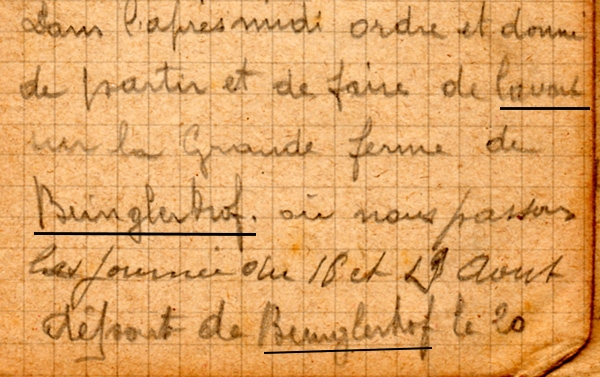 Dans l'après midi ordre et donné
de partir et de faire de l'avant
sur la Grande ferme de
Beinglerhof. où nous passons
les journée du 18 et 19 Aout
départ de Beinglerhof le 20